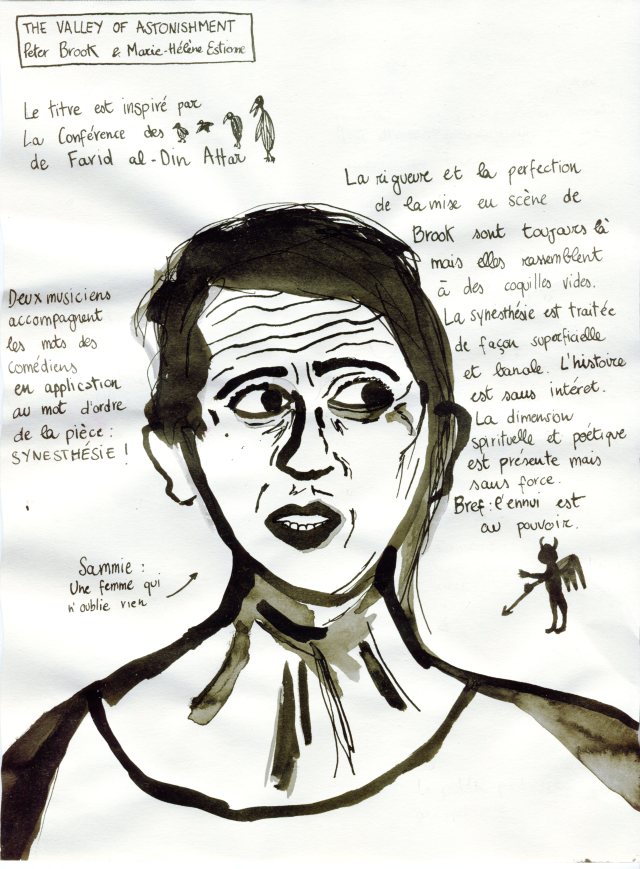 THE VALLEY OF ASTONISHMENT
Peter Brook & Marie-Hélène Estione
Le titre est inspiré par
La Conférence des
de Farid al-Din Attar
La rigueure et la perfection
de la mise en scène de
Brook sont toujours là
mais elles rassemblent
à des coquilles vides.
La synesthésie est traitée
de façon superficielle
et banale. L'histoire
est sans intéret.
La dimension
spirituelle et poétique
est présente mais
sans force.
Bref: l'ennui est
au pouvoir.
Deux musiciens
accompagnent
les mots des
comédiens
en application
au mot d'ordre
de la pièce :
SYNESTHÉSIE !
Sammie :
Une femme qui
n'oublie rien